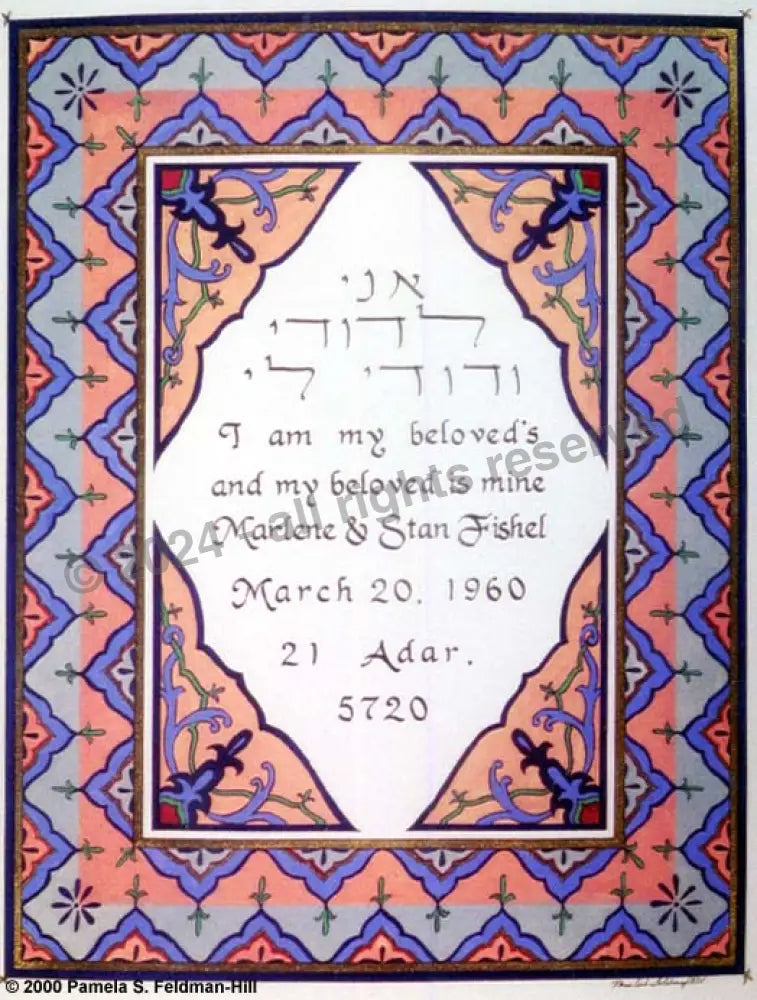 אני
לדודי
ודודי לי
I am my beloved's
and my beloved is mine
Marlene & Stan Fishel
March 20, 1960
21 Adar,
5720
© 2024 - all rights reserved
© 2000 Pamela S. Feldman-Hill